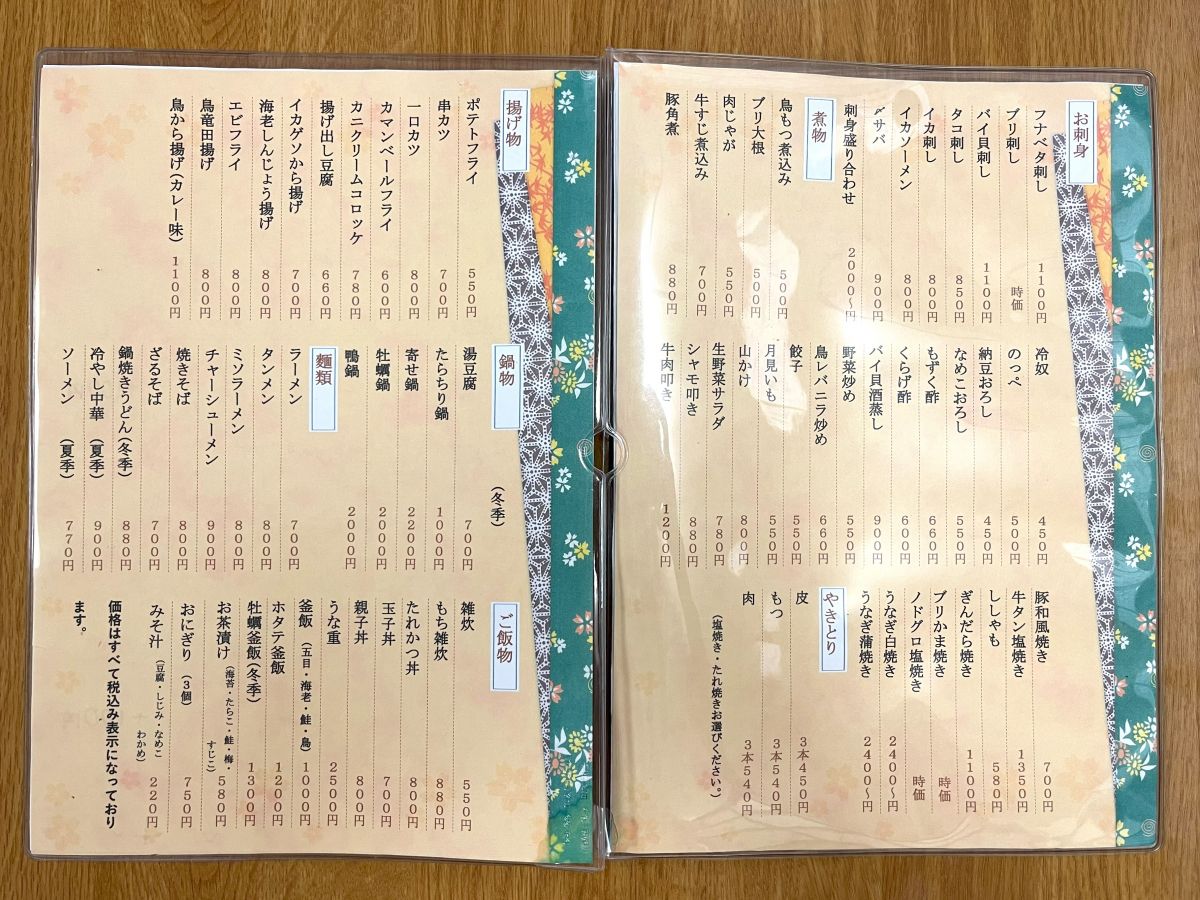 お刺身
フナベタ刺し 1100円
ブリ刺し 時価
バイ貝刺し 1100円
タコ刺し 850円
イカ刺し 800円
イカソーメン 800円
〆サバ 900円
刺身盛り合わせ 2000〜円
煮物
鳥もつ煮込み 500円
ブリ大根 500円
肉じゃが 550円
牛すじ煮込み 700円
豚角煮 880円
冷奴 450円
のっぺ 500円
納豆おろし 450円
なめこおろし 550円
もずく酢 660円
くらげ酢 600円
バイ貝酒蒸し 900円
野菜炒め 550円
鳥レバニラ炒め 660円
餃子 550円
月見いも 550円
山かけ 800円
生野菜サラダ 780円
シャモ叩き 880円
牛肉叩き 1200円
豚和風焼き 700円
牛タン塩焼き 1350円
ししゃも 580円
ぎんだら焼き 1100円
ブリかま焼き 時価
ノドグロ塩焼き 時価
うなぎ白焼き 2400〜円
うなぎ蒲焼き 2400〜円
やきとり
皮 3本450円
もつ 3本540円
肉 3本540円
(塩焼き・たれ焼きお選びください。)
揚げ物
ポテトフライ 550円
串カツ 700円
一口カツ 800円
カマンベールフライ 600円
カニクリームコロッケ 780円
揚げ出し豆腐 660円
イカゲソから揚げ 700円
海老しんじょう揚げ 800円
エビフライ 800円
鳥竜田揚げ 800円
鳥から揚げ(カレー味) 1100円
鍋物 (冬季)
湯豆腐 700円
たらちり鍋 1000円
寄せ鍋 2200円
牡蠣鍋 2000円
鴨鍋 2000円
麺類
ラーメン 700円
タンメン 800円
ミソラーメン 800円
チャーシューメン 900円
焼きそば 800円
ざるそば 700円
鍋焼きうどん(冬季) 880円
冷やし中華 (夏季) 900円
ソーメン (夏季) 770円
ご飯物
雑炊 550円
もち雑炊 880円
たれかつ丼 800円
玉子丼 700円
親子丼 800円
うな重 2500円
釜飯 (五目・海老・鮭・鳥) 1000円
ホタテ釜飯 1200円
牡蠣釜飯(冬季) 1300円
お茶漬け (海苔・たらこ・鮭・梅・すじこ) 580円
おにぎり (3個) 750円
みそ汁 (豆腐・しじみ・なめこ わかめ) 220円
価格はすべて税込み表示になっており
ます。